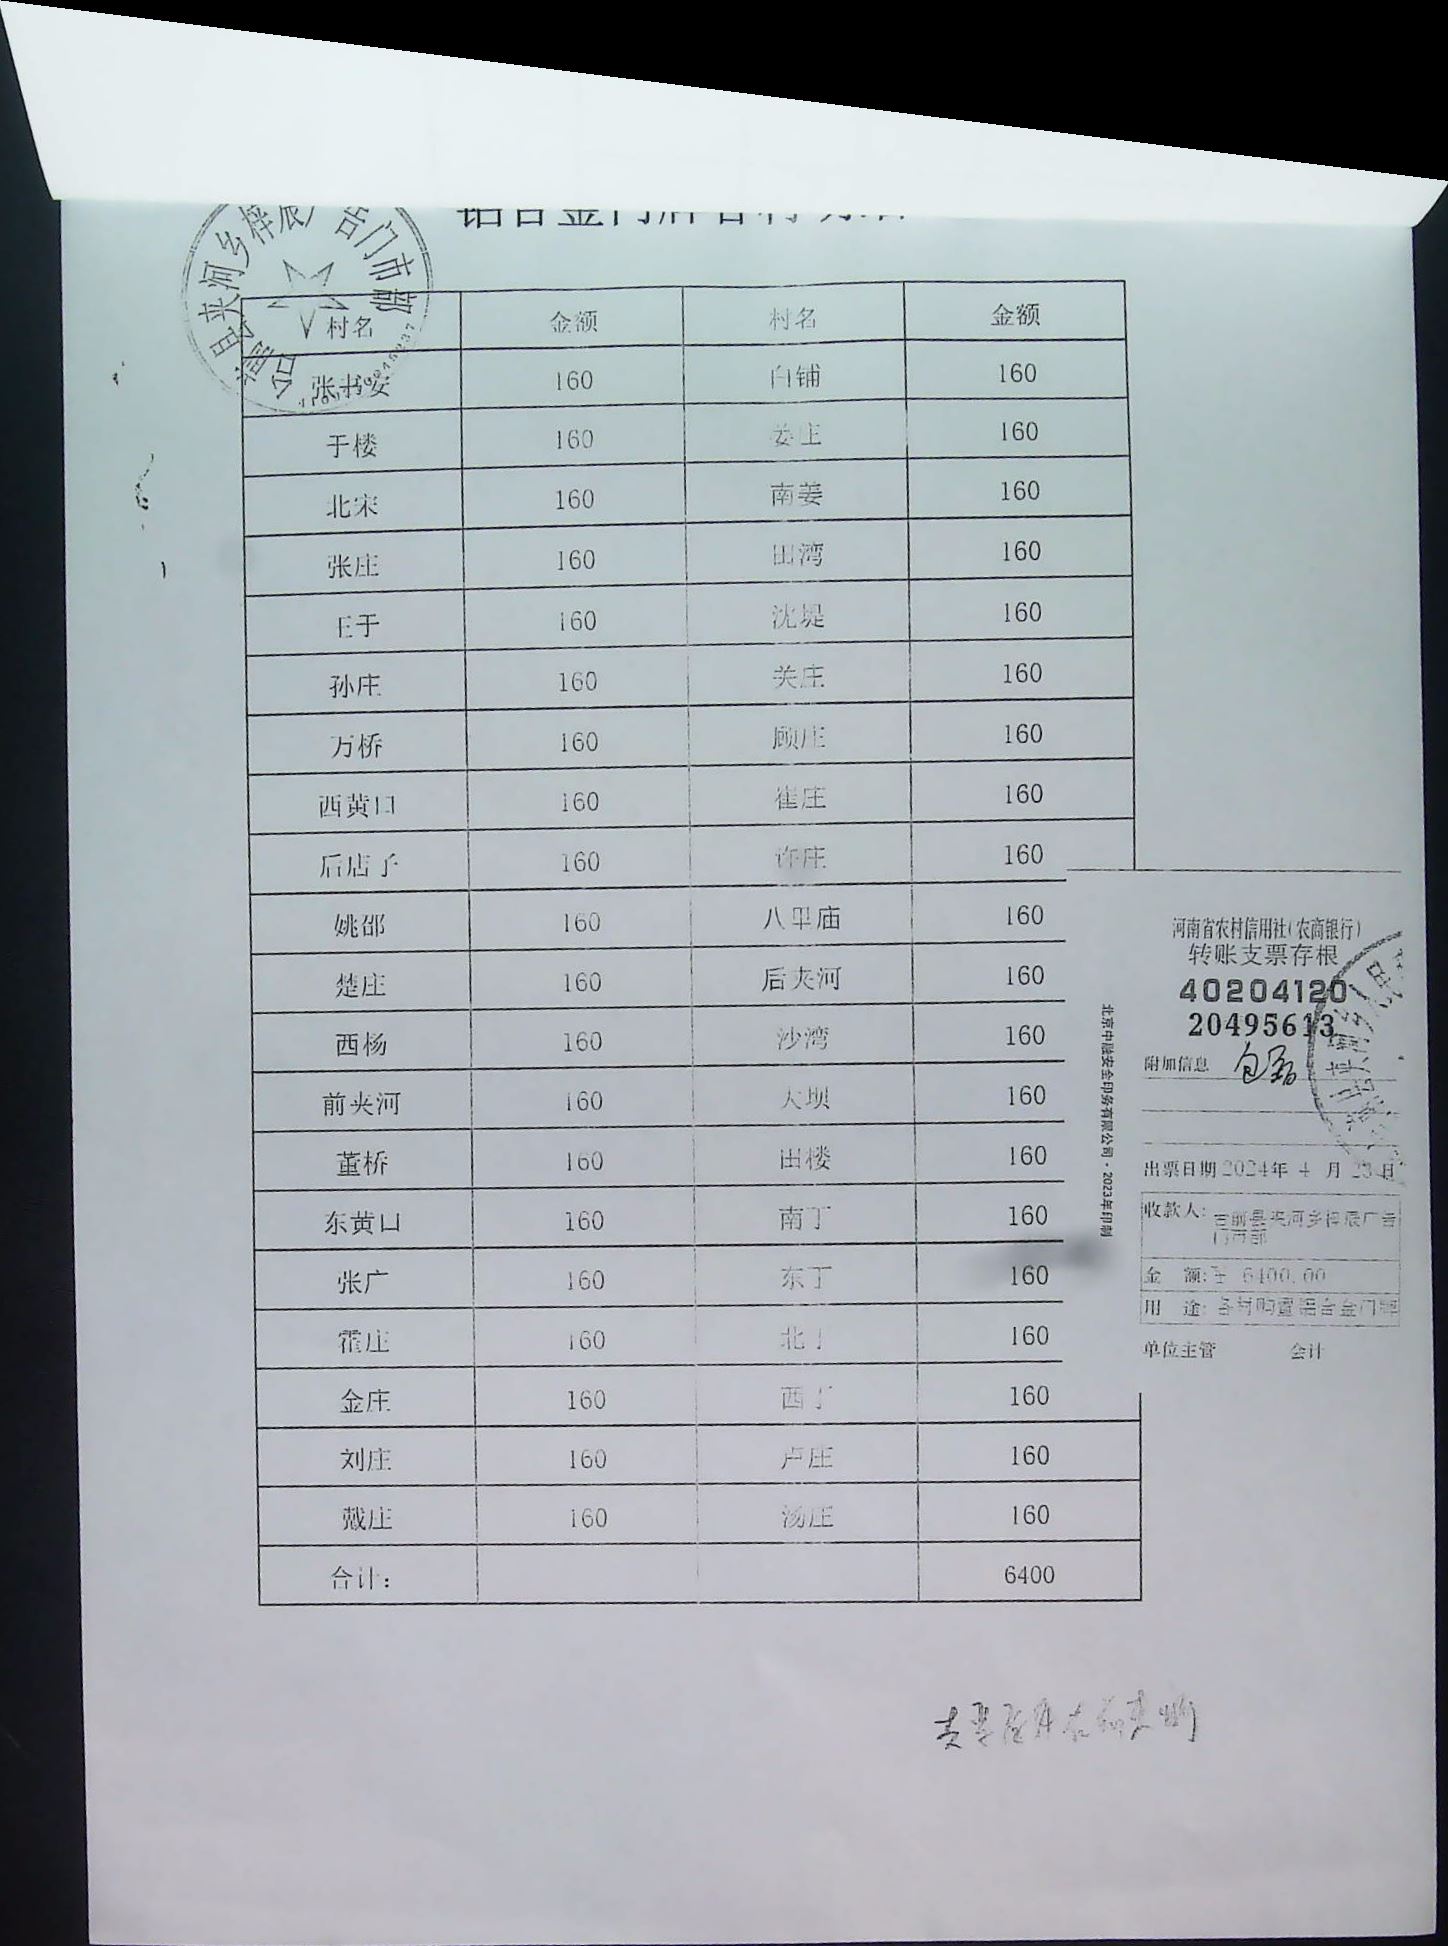 铝合金门牌各村明细
村名 金额 村名 金额
张书安 160 白铺 160
于楼 160 姜庄 160
北宋 160 南姜 160
张庄 160 田湾 160
王于 160 沈堤 160
孙庄 160 关庄 160
万桥 160 顾庄 160
西黄口 160 崔庄 160
后店子 160 许庄 160
姚邵 160 八里庙 160
楚庄 160 后夹河 160
西杨 160 沙湾 160
前夹河 160 大坝 160
董桥 160 田楼 160
东黄口 160 南丁 160
张广 160 东丁 160
霍庄 160 北丁 160
金庄 160 西丁 160
刘庄 160 卢庄 160
戴庄 160 汤庄 160
合计： 6400
台前县夹河乡梓辰广告门市部
河南省农村信用社（农商银行）
转账支票存根
40204120
20495613
附加信息
出票日期 2024年 4 月 23 日
收款人： 台前县夹河乡梓辰广告
门市部
金 额：¥ 6400.00
用 途： 各村购置铝合金门牌
单位主管 会计
北京中融安全印务有限公司·2023年印制